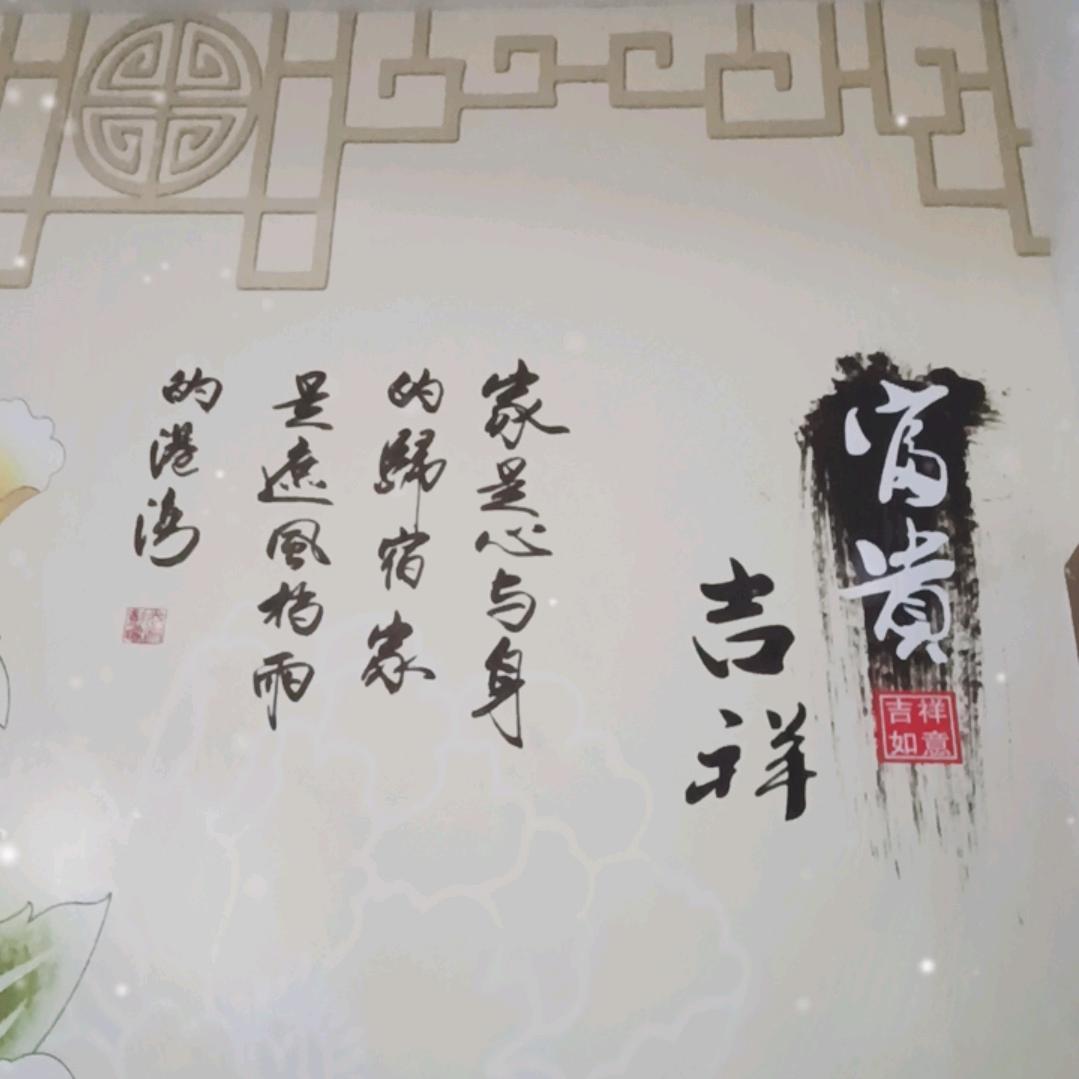 富貴
吉祥
吉祥
如意
家是心与身
的歸宿家
是遮風档雨
的港湾